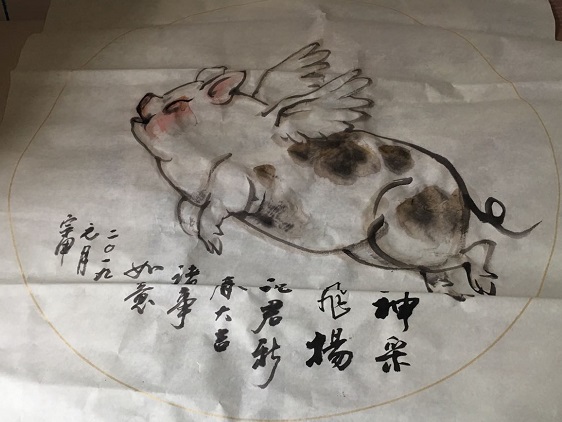 神采
飛揚
祝君新
春大吉
诸事
如意
二〇一九
元月